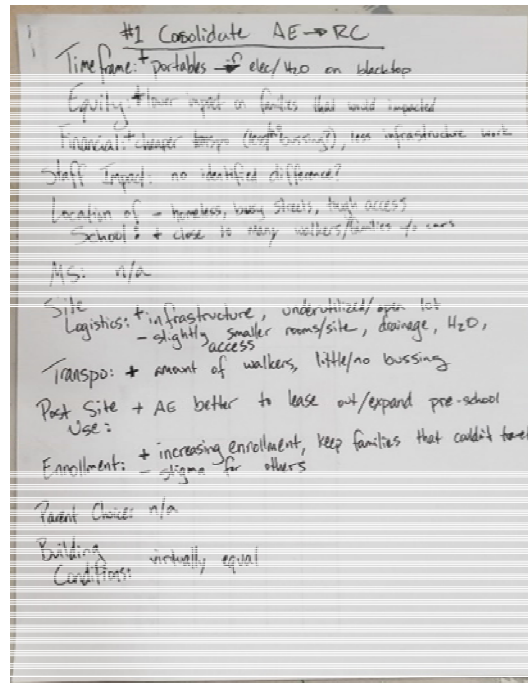 #1 Consolidate AE → RC
Timeframe: + portables → elec/H2O on blacktop
Equity: + lower impact on families that would impacted
Financial: + cheaper (bussing?), less infrastructure work
Staff Impact: no identified difference?
Location of - homeless, busy streets, tough access
School: + close to many walkers/families w/o cars
MS: n/a
Site + infrastructure, underutilized/open lot
Logistics: - slightly smaller rooms/site, drainage, H2O,
access
Transpo: + amount of walkers, little/no bussing
Post Site + AE better to lease out/expand pre-school
Use:
+ increasing enrollment, keep families that couldn't travel
Enrollment: - stigma for others
Parent Choice: n/a
Building virtually equal
Conditions: